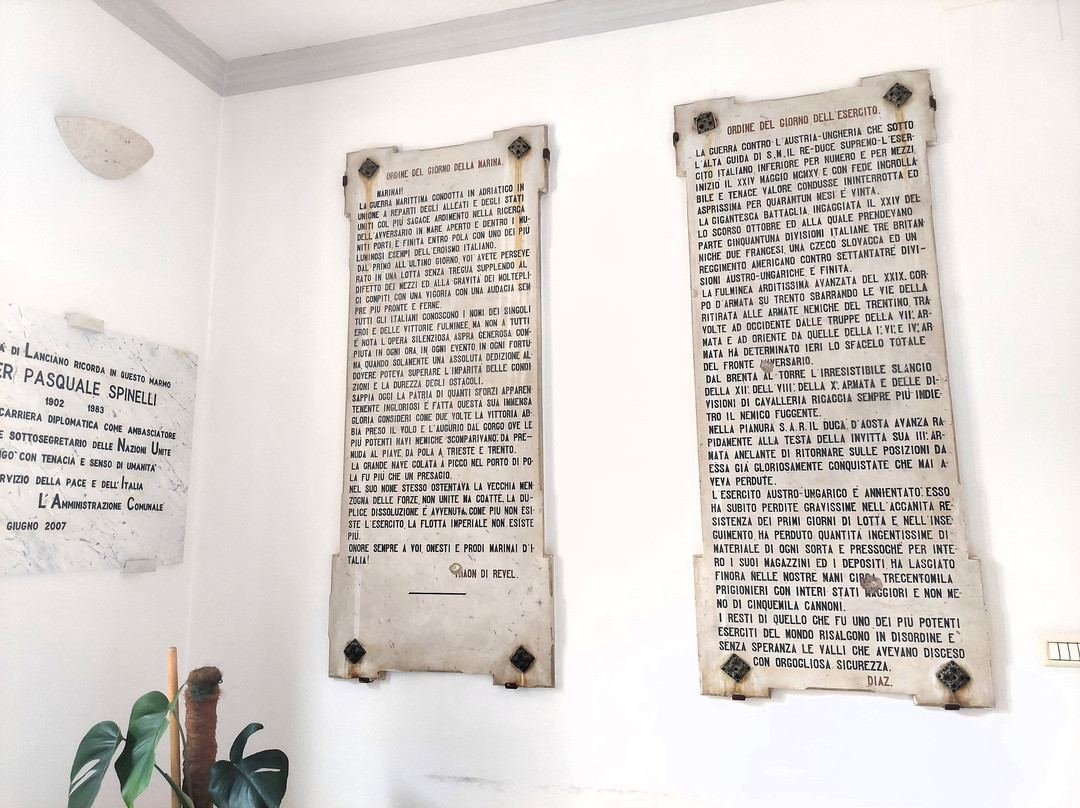 DI LANCIANO RICORDA IN QUESTO MARMO
PASQUALE SPINELLI
1902 1983
CARRIERA DIPLOMATICA COME AMBASCIATORE
E SOTTOSEGRETARIO DELLE NAZIONI UNITE
CON TENACIA E SENSO DI UMANITA'
DELLA PACE E DELL'ITALIA
L'AMMINISTRAZIONE COMUNALE
GIUGNO 2007
ORDINE DEL GIORNO DELLA MARINA.
MARINAI!
LA GUERRA MARITTIMA CONDOTTA IN ADRIATICO IN
UNIONE A REPARTI DEGLI ALLEATI E DEGLI STATI
UNITI COL PIU SAGACE ARDIMENTO NELLA RICERCA
DELL'AVVERSARIO IN MARE APERTO E DENTRO I MU-
NITI PORTI E FINITA ENTRO POLA CON UNO DEI PIU
LUMINOSI ESEMPI DELL'EROISMO ITALIANO.
DAL PRIMO ALL'ULTIMO GIORNO, VOI AVETE PERSEVE-
RATO IN UNA LOTTA SENZA TREGUA SUPPLENDO AL
DIFETTO DEI MEZZI ED ALLA GRAVITÀ DEI MOLTEPLI-
CI COMPITI, CON UNA VIGORIA CON UNA AUDACIA SEM-
PRE PIU PRONTE E FERME.
TUTTI GLI ITALIANI CONOSCONO I NOMI DEI SINGOLI
EROI E DELLE VITTORIE FULMINEE, MA NON A TUTTI
È NOTA L'OPERA SILENZIOSA, ASPRA GENEROSA COM-
PIUTA IN OGNI ORA, IN OGNI EVENTO, IN OGNI FORTU-
NA, QUANDO SOLAMENTE UNA ASSOLUTA DEDIZIONE AL
DOVERE POTEVA SUPERARE L'IMPARITÀ DELLE CONDI-
ZIONI E LA DUREZZA DEGLI OSTACOLI.
SAPPIA OGGI LA PATRIA DI QUANTI SFORZI APPAREN-
TENENTE INGLORIOSI E FATTA QUESTA SUA IMMENSA
GLORIA CONSIDERI COME DUE VOLTE LA VITTORIA AB-
BIA PRESO IL VOLO E L'AUGURIO DAL GORGO OVE LE
PIÙ POTENTI NAVI NEMICHE SCOMPARIVANO: DA PRE-
MUDA AL PIAVE, DA POLA A TRIESTE E TRENTO.
LA GRANDE NAVE COLATA A PICCO NEL PORTO DI PO-
LA FU PIÙ CHE UN PRESAGIO.
NEL SUO NONE STESSO OSTENTAVA LA VECCHIA MEN-
ZOGNA DELLE FORZE, NON UNITE MA COATTE. LA DU-
PLICE DISSOLUZIONE È AVVENUTA. COME PIÙ NON ESI-
STE L'ESERCITO, LA FLOTTA IMPERIALE NON ESISTE
PIÙ.
ONORE SEMPRE A VOI, ONESTI E PRODI MARINAI D'I-
TALIA!
DI REVEL.
ORDINE DEL GIORNO DELL'ESERCITO.
LA GUERRA CONTRO L'AUSTRIA-UNGHERIA CHE SOTTO
L'ALTA GUIDA DI S.M. IL RE-DUCE SUPREMO-L'ESER-
CITO ITALIANO, INFERIORE PER NUMERO E PER MEZZI
INIZIO IL XXIV MAGGIO MCMXV E CON FEDE INCROLLA-
BILE E TENACE VALORE CONDUSSE ININTERROTTA ED
ASPRISSIMA PER QUARANTUN MESI E' VINTA.
LA GIGANTESCA BATTAGLIA, INGAGGIATA IL XXIV DEL-
LO SCORSO OTTOBRE ED ALLA QUALE PRENDEVANO
PARTE CINQUANTUNA DIVISIONI ITALIANE TRE BRITAN-
NICHE DUE FRANCESI, UNA CZECO SLOVACCA ED UN
REGGIMENTO AMERICANO CONTRO SETTANTATRÈ DIVI-
SIONI AUSTRO-UNGARICHE È FINITA.
LA FULMINEA ARDITISSIMA AVANZATA DEL XXIX. COR-
PO D'ARMATA SU TRENTO SBARRANDO LE VIE DELLA
RITIRATA ALLE ARMATE NEMICHE DEL TRENTINO, TRA-
VOLTE AD OCCIDENTE DALLE TRUPPE DELLA VII: AR-
MATA E AD ORIENTE DA QUELLE DELLA I: VI: E IV: AR-
MATA HA DETERMINATO IERI LO SFACELO TOTALE
DEL FRONTE AVVERSARIO.
DAL BRENTA AL TORRE L'IRRESISTIBILE SLANCIO
DELLA XII: DELL'VIII: DELLA X: ARMATA E DELLE DI-
VISIONI DI CAVALLERIA RICACCIA SEMPRE PIÙ INDIE-
TRO IL NEMICO FUGGENTE.
NELLA PIANURA S.A.R. IL DUCA D'AOSTA AVANZA RA-
PIDAMENTE ALLA TESTA DELLA INVITTA SUA III: AR-
MATA ANELANTE DI RITORNARE SULLE POSIZIONI DA
ESSA GIÀ GLORIOSAMENTE CONQUISTATE CHE MAI A-
VEVA PERDUTE.
L'ESERCITO AUSTRO-UNGARICO È ANNIENTATO: ESSO
HA SUBITO PERDITE GRAVISSIME NELL'ACCANITA RE-
SISTENZA DEI PRIMI GIORNI DI LOTTA E NELL'INSE-
GUIMENTO, HA PERDUTO QUANTITÀ INGENTISSIME DI
MATERIALE DI OGNI SORTA E PRESSOCHÈ PER INTE-
RO I SUOI MAGAZZINI ED I DEPOSITI, HA LASCIATO
FINORA NELLE NOSTRE MANI CIRCA TRECENTOMILA
PRIGIONIERI CON INTERI STATI MAGGIORI E NON ME-
NO DI CINQUEMILA CANNONI.
I RESTI DI QUELLO CHE FU UNO DEI PIÙ POTENTI
ESERCITI DEL MONDO RISALGONO IN DISORDINE E
SENZA SPERANZA LE VALLI CHE AVEVANO DISCESO
CON ORGOGLIOSA SICUREZZA.
DIAZ.